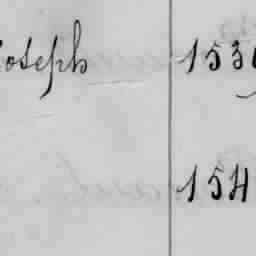 Joseph 153
154